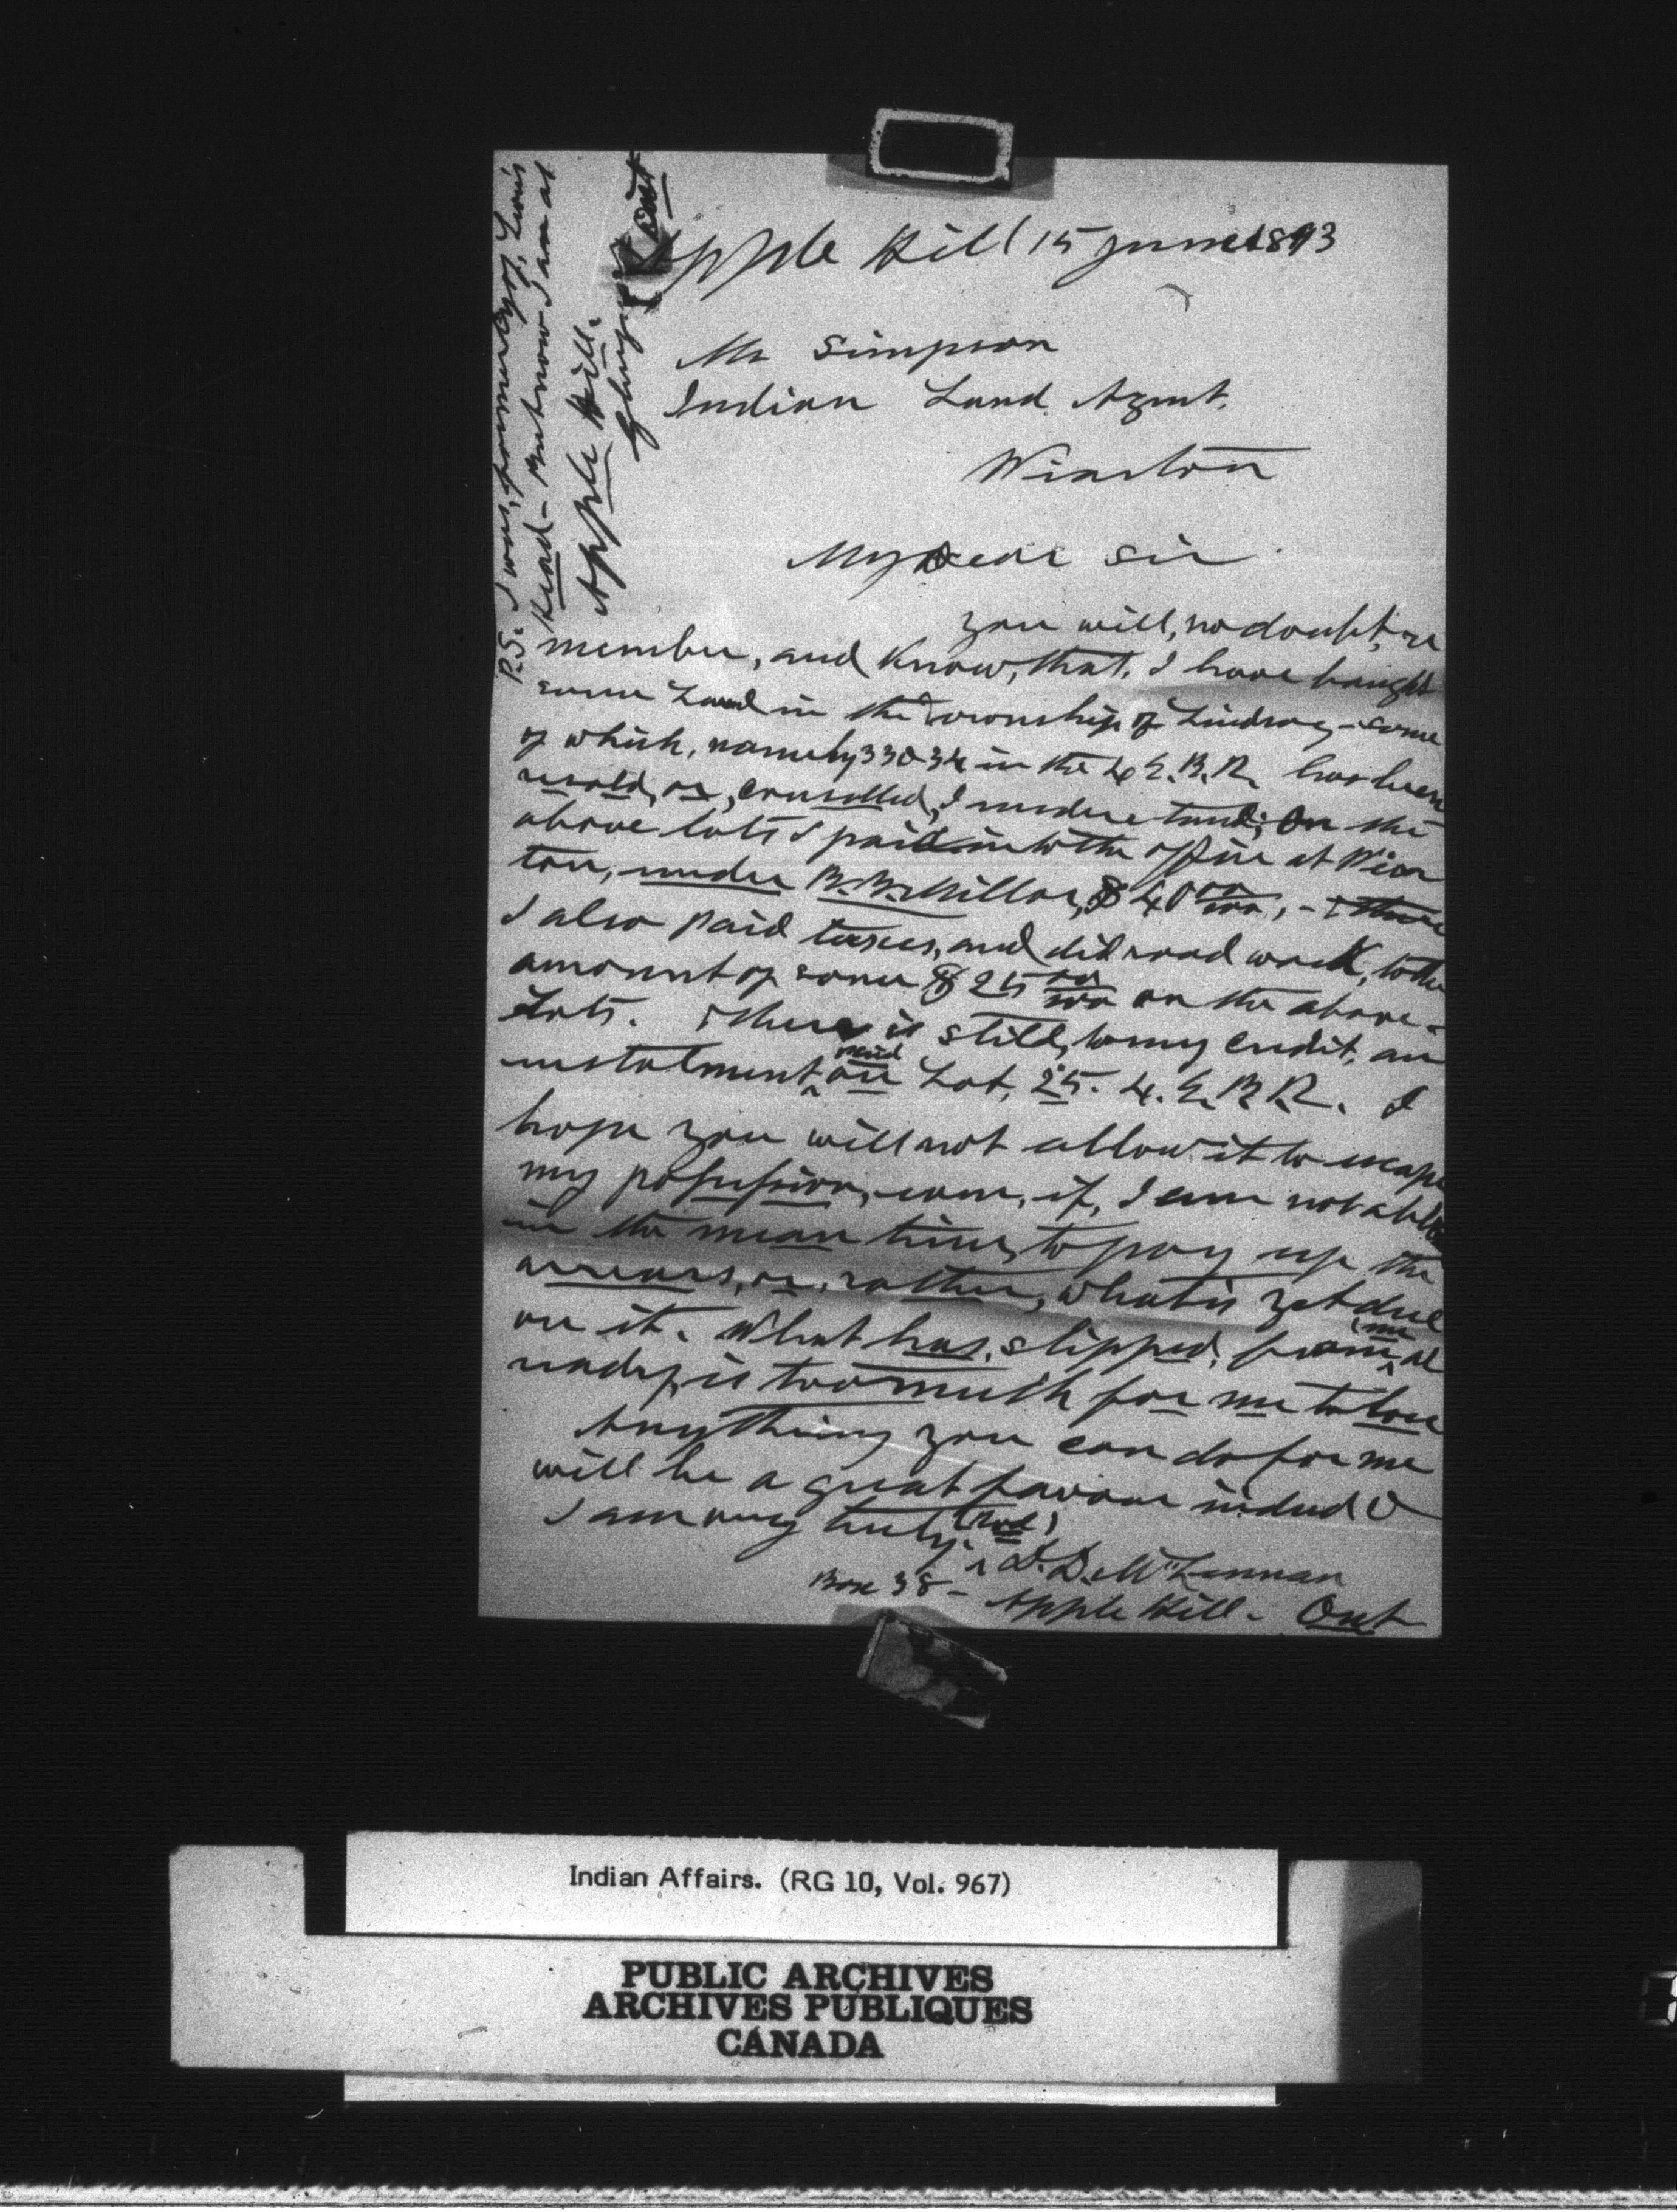 Apple Hill 15 June 1893
Mr Simpson
Indian Land Agent.
Wiarton
My Dear Sir
you will, no doubt, re
member, and know, that, I have bought
some Land in the Township of Lindsay - some
of which, namely 33 & 34 in the 4 E. B. R. has been
resold, or, cancelled, I understand; On the
above lots I paid into the office at Wiar
ton, under B. B. Miller, $40 00/100, -
I also paid taxes, and did road work, to the
amount of some $25 00/100 on the above-
Lots. There is still, to my credit, an
instalment paid on Lot, 25. 4. E. B. R. I
hope you will not allow it to escape
my possession, even, if, I am not able
in the mean time, to pay up the
arrears, or, rather, what is yet due
on it. What has, slipped, from me al
ready, is too much for me to lose
Anything you can do for me
will be a great favour indeed
I am very truly.
D. D. McLennan
Box 38 - Apple Hill - Ont
P.S. I was, formerly of, Lion's
Head - But now I am at
Apple Hill.
Ont
Indian Affairs. (RG 10, Vol. 967)
PUBLIC ARCHIVES
ARCHIVES PUBLIQUES
CANADA